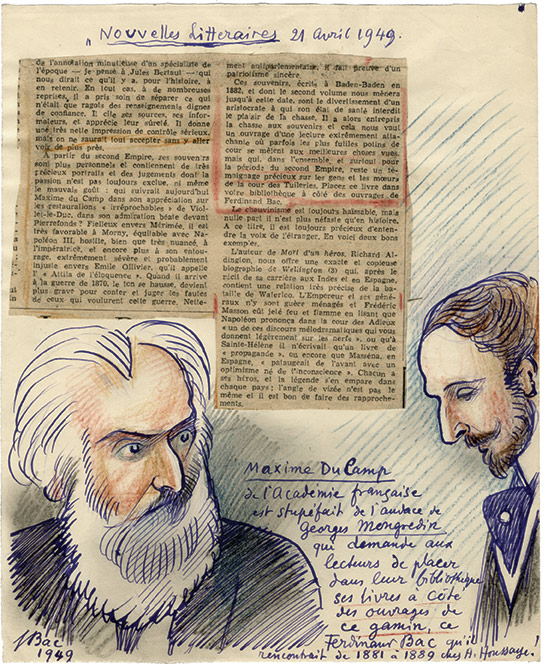 „ Nouvelles Litteraires 21 avril 1949.
de l'annotation minutieuse d'un spécialiste de
l'époque — je pense à Jules Bertaut — qui
nous dirait ce qu'il y a, pour l'histoire, à
en retenir. En tout cas, à de nombreuses
reprises, il a pris soin de séparer ce qui
n'était que ragots des renseignements dignes
de confiance. Il cite ses sources, ses infor-
mateurs, et apprécie leur sûreté. Il donne
une très nette impression de contrôle sérieux,
mais on ne saurait tout accepter sans y aller
voir de plus près.
A partir du second Empire, ses souvenirs
sont plus personnels et contiennent de très
précieux portraits et des jugements dont la
passion n'est pas toujours exclue, ni même
le mauvais goût : qui suivrait aujourd'hui
Maxime du Camp dans son appréciation sur
les restaurations « irréprochables » de Viol-
let-le-Duc, dans son admiration béate devant
Pierrefonds ? Fielleux envers Mérimée, il est
très favorable à Morny, équitable avec Na-
poléon III, hostile, bien que très nuancé, à
l'impératrice, et encore plus à son entou-
rage, extrêmement sévère et probablement
injuste envers Emile Ollivier, qu'il appelle
l' « Attila de l'éloquence ». Quand il arrive
à la guerre de 1870, le ton se hausse, devient
plus grave pour conter et juger les fautes
de ceux qui voulurent cette guerre. Nette-
ment antiparlementaire, il fait preuve d'un
patriotisme sincère.
Ces souvenirs, écrits à Baden-Baden en
1882, et dont le second volume nous mène
jusqu'à cette date, sont le divertissement d'un
aristocrate à qui son état de santé interdit
le plaisir de la chasse. Il a alors entrepris
la chasse aux souvenirs et cela nous vaut
un ouvrage d'une lecture extrêmement atta-
chante où parfois les plus futiles potins de
cour se mêlent aux meilleures choses vues,
mais qui, dans l'ensemble, et surtout pour
la période du second Empire, reste un té-
moignage précieux sur les gens et les mœurs
de la cour des Tuileries. Placez ce livre dans
votre bibliothèque à côté des ouvrages de
Ferdinand Bac.
Le chauvinisme est toujours haïssable, mais
nulle part il n'est plus néfaste qu'en histoire.
A ce titre, il est toujours précieux d'enten-
dre la voix de l'étranger. En voici deux bons
exemples.
L'auteur de Mort d'un héros, Richard Al-
dington, nous offre une exacte et copieuse
biographie de Wellington (3) qui, après le
récit de sa carrière aux Indes et en Espagne,
contient une relation très précise de la ba-
taille de Waterloo. L'Empereur et ses géné-
raux n'y sont guère ménagés et Frédéric
Masson eût jeté feu et flamme en lisant que
Napoléon prononça dans la cour des Adieux
« un de ces discours mélodramatiques qui vous
donnent légèrement sur les nerfs », ou qu'à
Sainte-Hélène il n'écrivait qu'un livre de
« propagande », ou encore que Masséna, en
Espagne, « pataugeait de l'avant avec un
optimisme né de l'inconscience ». Chacun a
ses héros, et la légende s'en empare dans
chaque pays ; l'angle de visée n'est pas le
même et il est bon de faire des rapproche-
ments.
Maxime Du Camp
de l'Academie française
est stupéfait de l'audace de
Georges Mongredin
qui demande aux
lecteurs de placer
dans leur bibliothèque
ses livres à côté
des ouvrages de
ce gamin, ce
Ferdinand Bac qu'il
rencontrait de 1881 à 1889 chez A. Houssaye !
Bac
1949